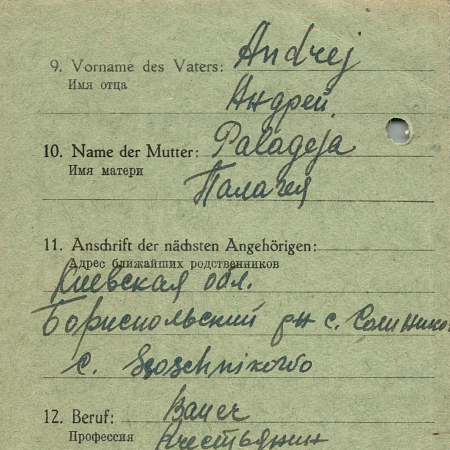 Andrej
9. Vorname des Vaters:
Имя отца
Андрей
10. Name der Mutter: Palageja
Имя матери
Палагея
11. Anschrift der nächsten Angehörigen:
Адрес ближайших родственников
Киевская обл.
Бориспольский рн с.
с.
12. Beruf: Bauer
Профессия Крестьянин